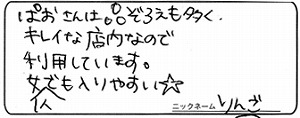 ぱおさんは品ぞろえも多く、
キレイな店内なので
利用しています。
女でも入りやすい☆
ニックネーム りんご